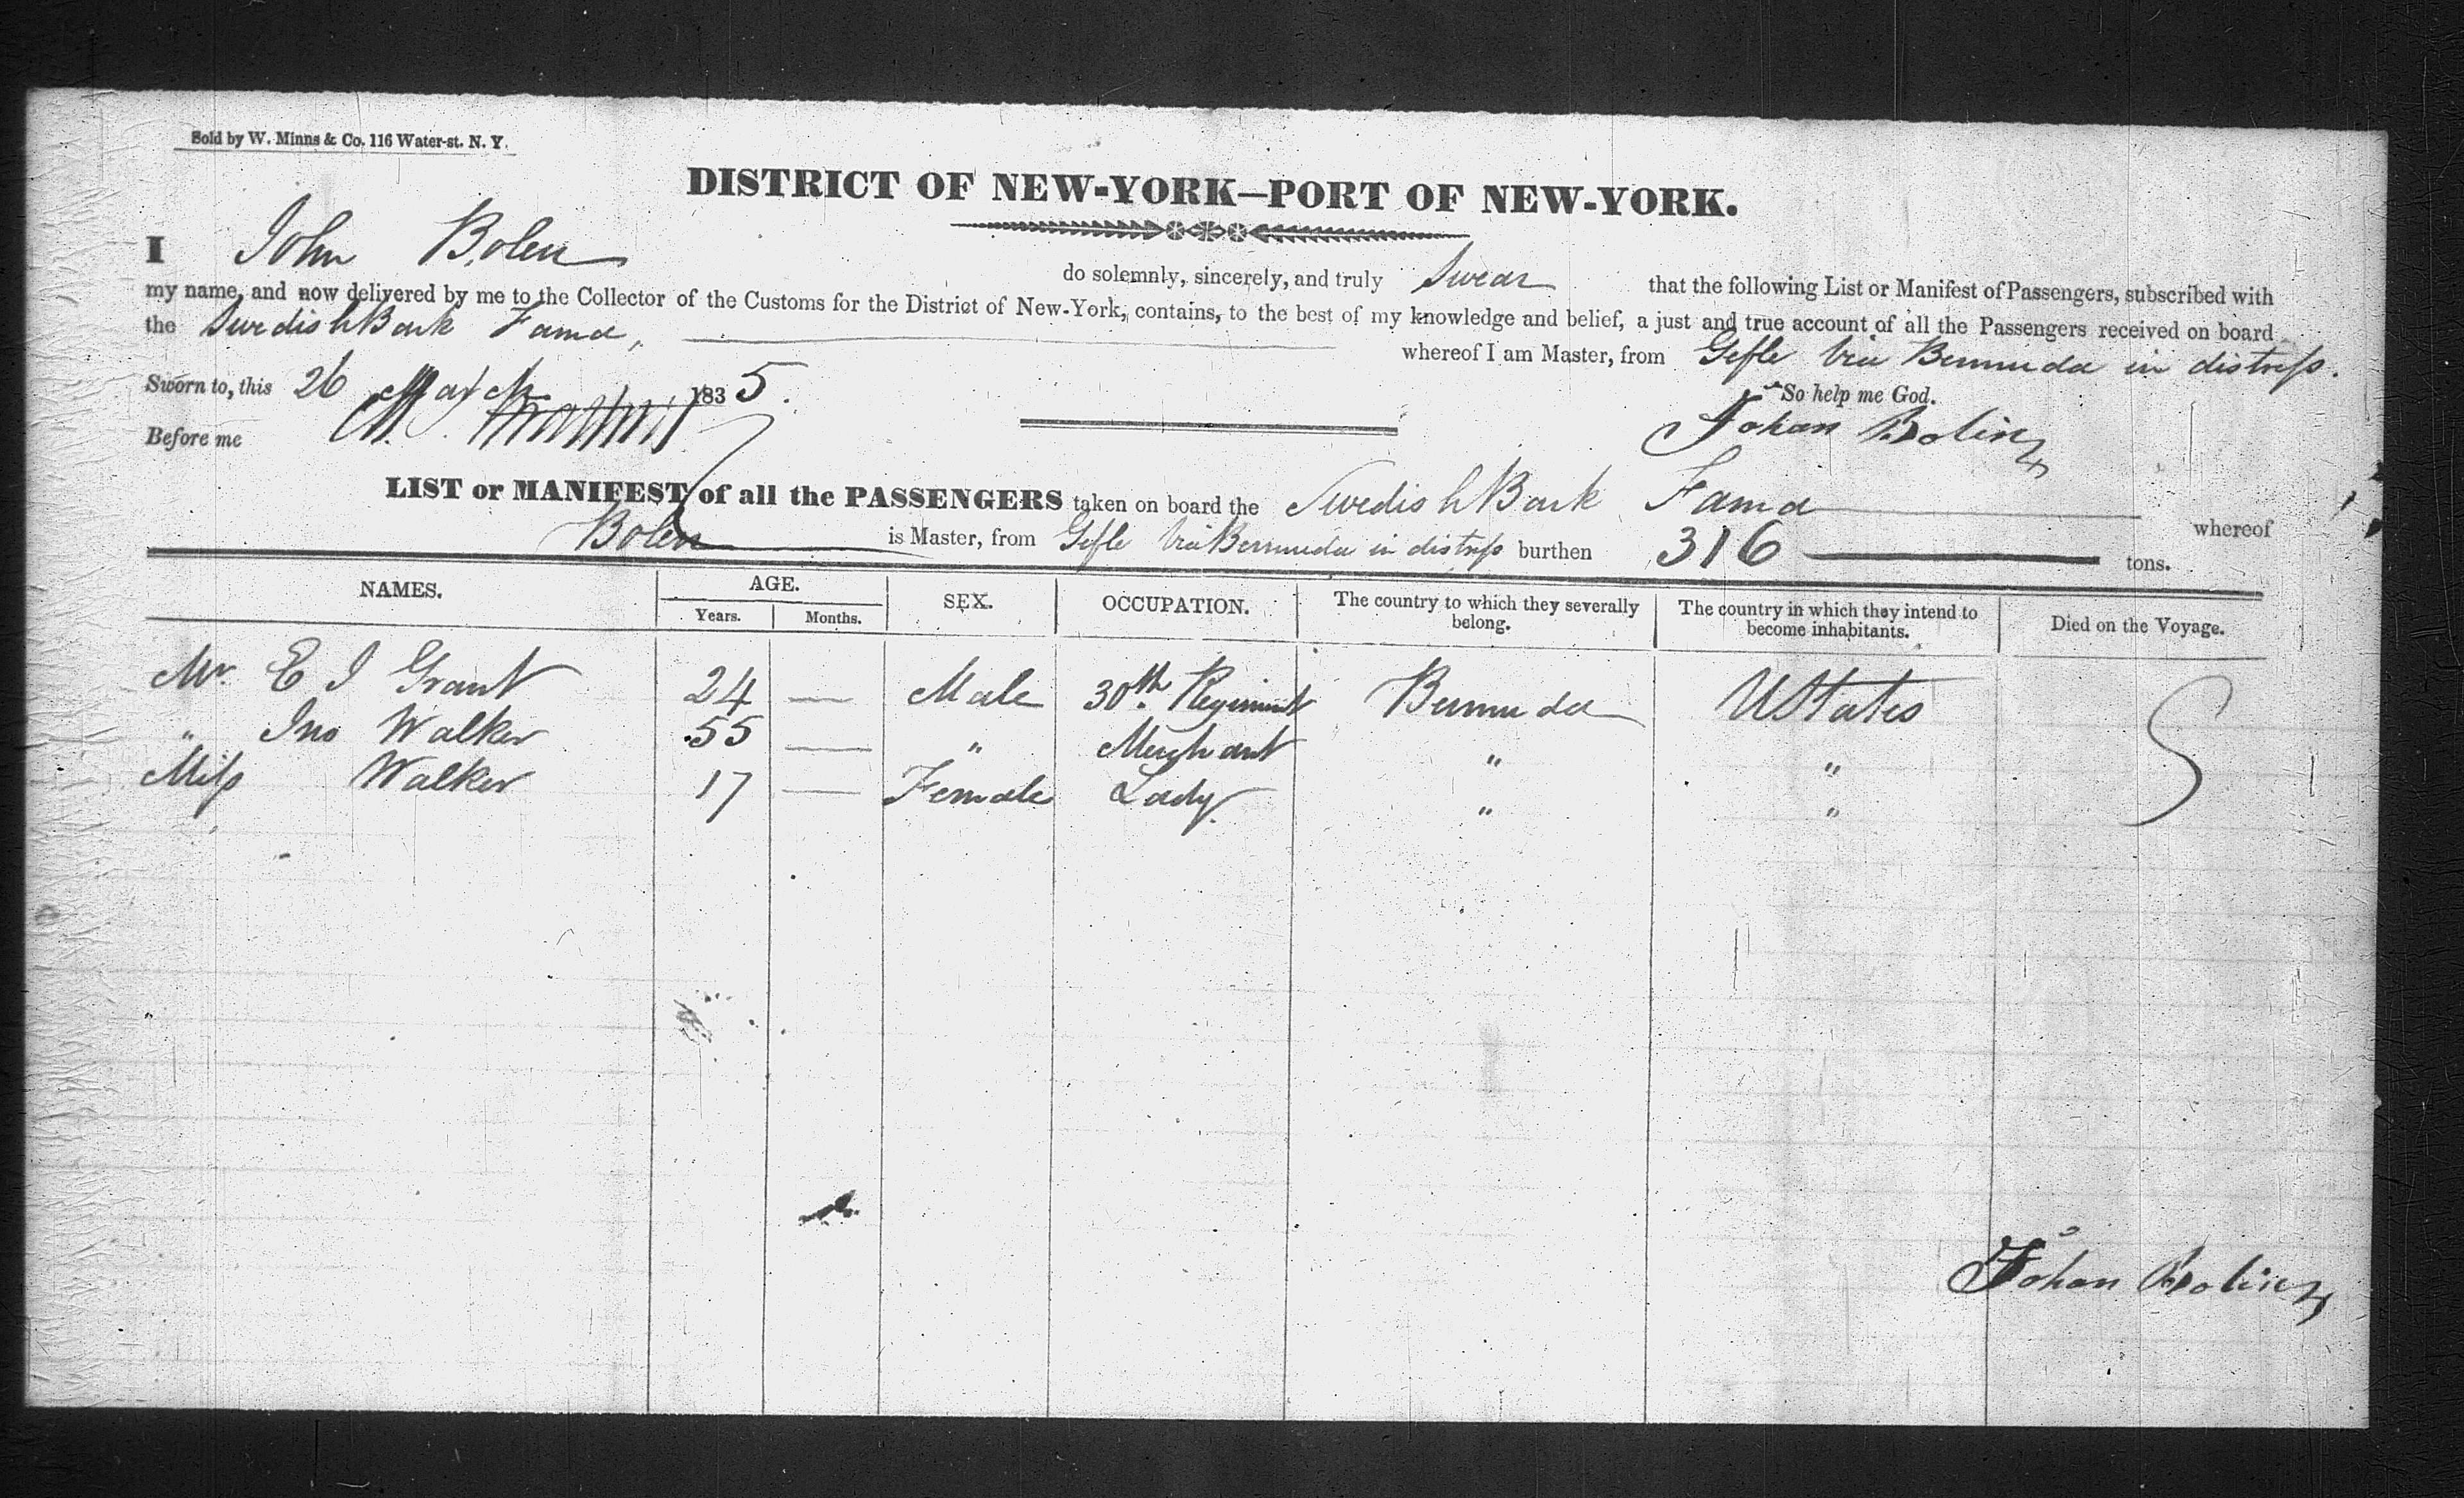 Sold by W. Minns & Co. 116 Water-st. N. Y.
DISTRICT OF NEW-YORK—PORT OF NEW-YORK.
I John Bolen do solemnly, sincerely, and truly Swear that the following List or Manifest of Passengers, subscribed with
my name, and now delivered by me to the Collector of the Customs for the District of New-York, contains, to the best of my knowledge and belief, a just and true account of all the Passengers received on board
the Swedish Bark Fama, whereof I am Master, from Gefle Via Bermuda in distress.
Sworn to, this 26 March 1835. So help me God.
Before me Johan Bolin
LIST or MANIFEST of all the PASSENGERS taken on board the Swedish Bark Fama whereof
Bolen is Master, from Gefle Via Bermuda in distress burthen 316 tons.
NAMES. AGE. SEX. OCCUPATION. The country to which they severally belong. The country in which they intend to become inhabitants. Died on the Voyage.
Years. Months.
Mr. E I Grant 24 — Male 30th. Regiment Bermuda UStates
" Jno Walker 55 — " Merchant " "
Miss Walker 17 — Female Lady " "
Johan Bolin